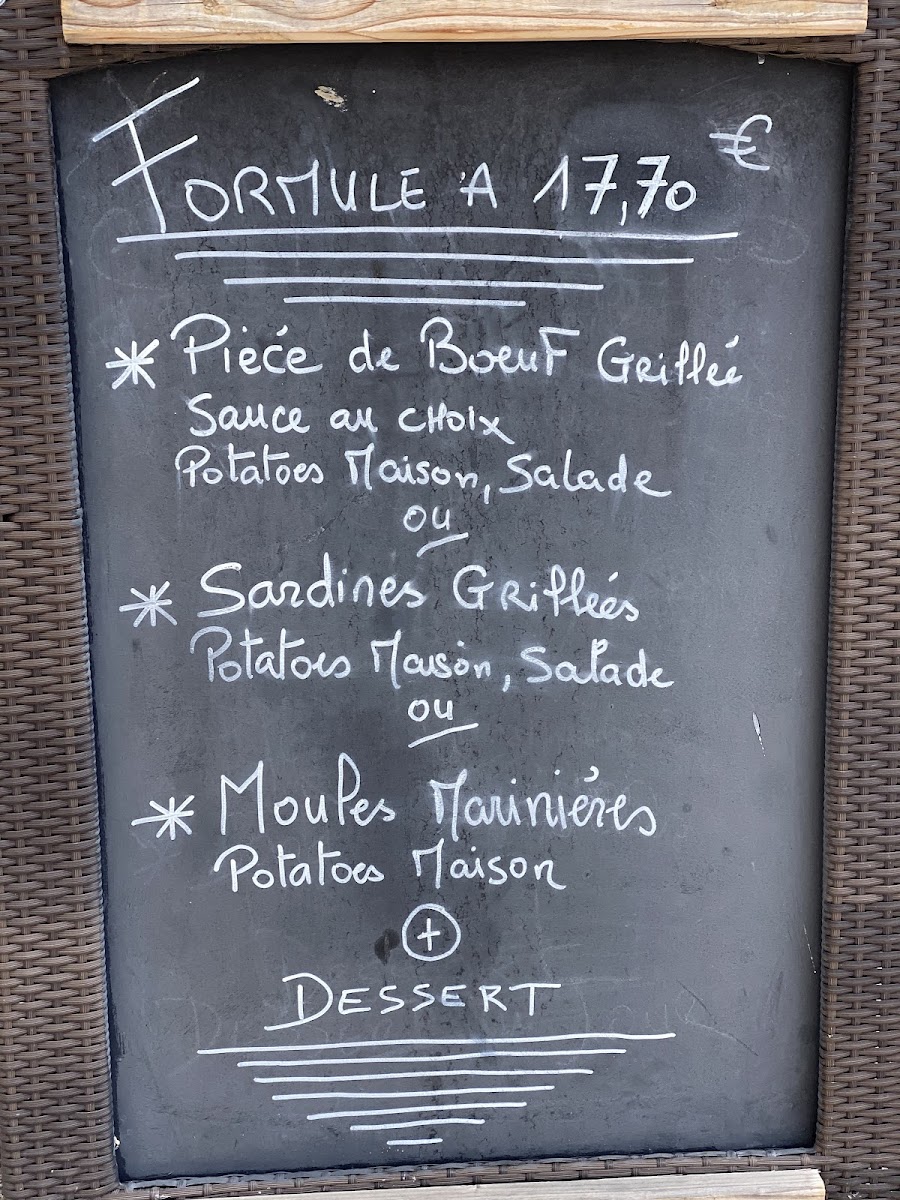 FORMULE A 17,70 €
* Pieće de BoeuF Grillée
Sauce au CHOIX
Potatoes Maison, Salade
ou
* Sardines Grillées
Potatoes Maison, Salade
ou
* Moules Mariniéres
Potatoes Maison
+
DESSERT